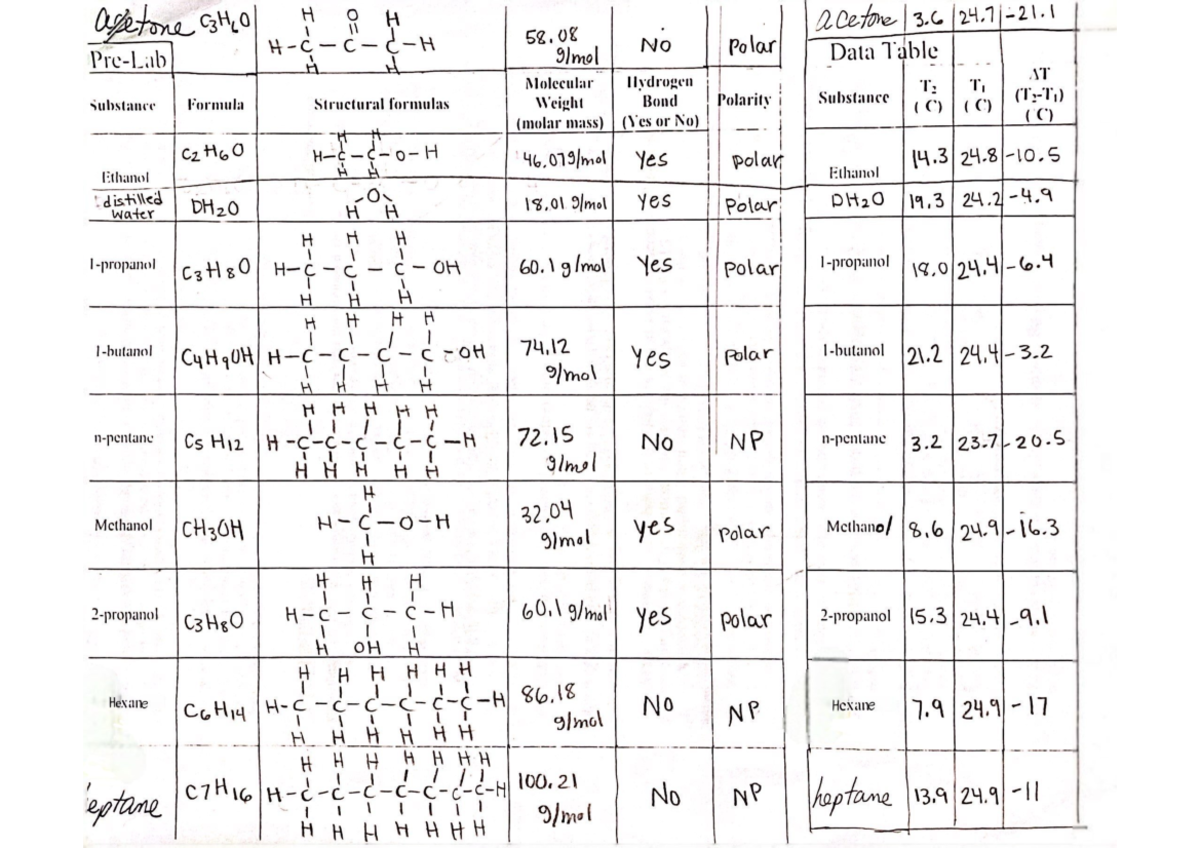 acetone C3H6O
H O H
H-C-C-C-H
H H
58.08 g/mol No Polar
acetone 3.6 24.7 -21.1
Pre-Lab
Data Table
Substance Formula Structural formulas Molecular Weight (molar mass) Hydrogen Bond (Yes or No) Polarity
Substance T₂ (C) T₁ (C) ΔT (T₂-T₁) (C)
H H
Ethanol C2H6O H-C-C-O-H 46.07g/mol Yes polar
H H
Ethanol 14.3 24.8 -10.5
distilled water DH2O O 18.01 g/mol Yes Polar
H H
DH2O 19.3 24.2 -4.9
H H H
1-propanol C3H8O H-C-C-C-OH 60.1g/mol Yes Polar
H H H
1-propanol 18.0 24.4 -6.4
H H H H
1-butanol C4H9OH H-C-C-C-C-OH 74.12 g/mol Yes Polar
H H H H
1-butanol 21.2 24.4 -3.2
H H H H H
n-pentane C5H12 H-C-C-C-C-C-H 72.15 g/mol No NP
H H H H H
n-pentane 3.2 23.7 -20.5
H
Methanol CH3OH H-C-O-H 32.04 g/mol yes polar
H
Methanol 8.6 24.9 -16.3
H H H
2-propanol C3H8O H-C-C-C-H 60.1g/mol yes polar
H OH H
2-propanol 15.3 24.4 -9.1
H H H H H H
Hexane C6H14 H-C-C-C-C-C-C-H 86.18 g/mol No NP
H H H H H H
Hexane 7.9 24.9 -17
H H H H H H H
eptane C7H16 H-C-C-C-C-C-C-C-H 100.21 g/mol No NP
H H H H H H H
heptane 13.9 24.9 -11